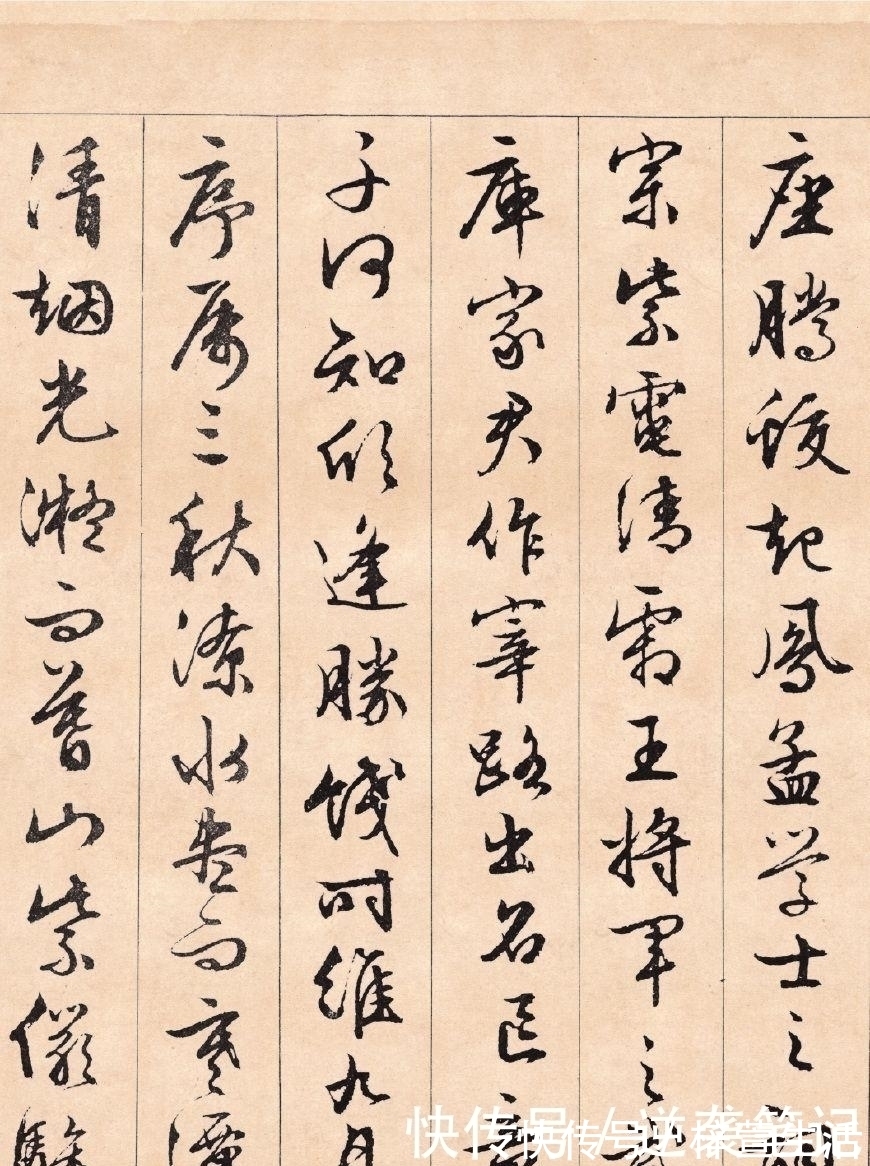 座腾蛟起凤孟学士之词
宗紫電清霜王将军之武
庫家君作宰路出名區童
子何知躬逢勝餞时維九月
序属三秋潦水尽而寒潭
清烟光凝而暮山紫儼驂
快传号/逆袭笔记